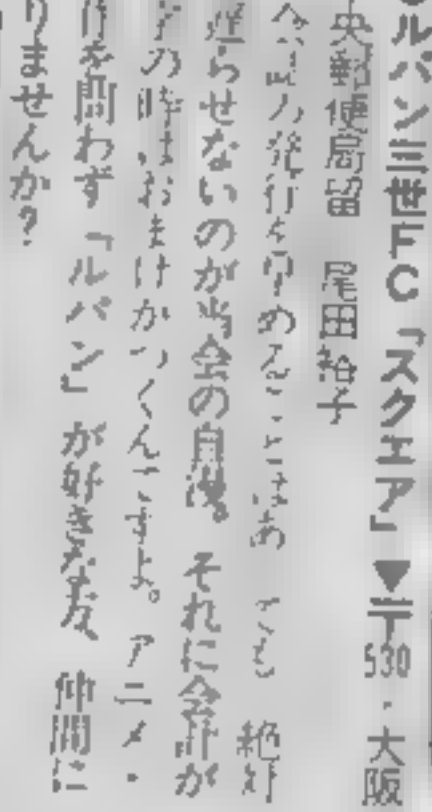 ルパン三世FC「スクエア」▼〒530・大阪
央郵便局留 尾田裕子
会誌の発行を早めることはあっても 絶対
遅らせないのが当会の自慢。それに会計が
の時はおまけがつくんですよ。アニメ・
を問わず「ルパン」が好きな友 仲間に
りませんか?